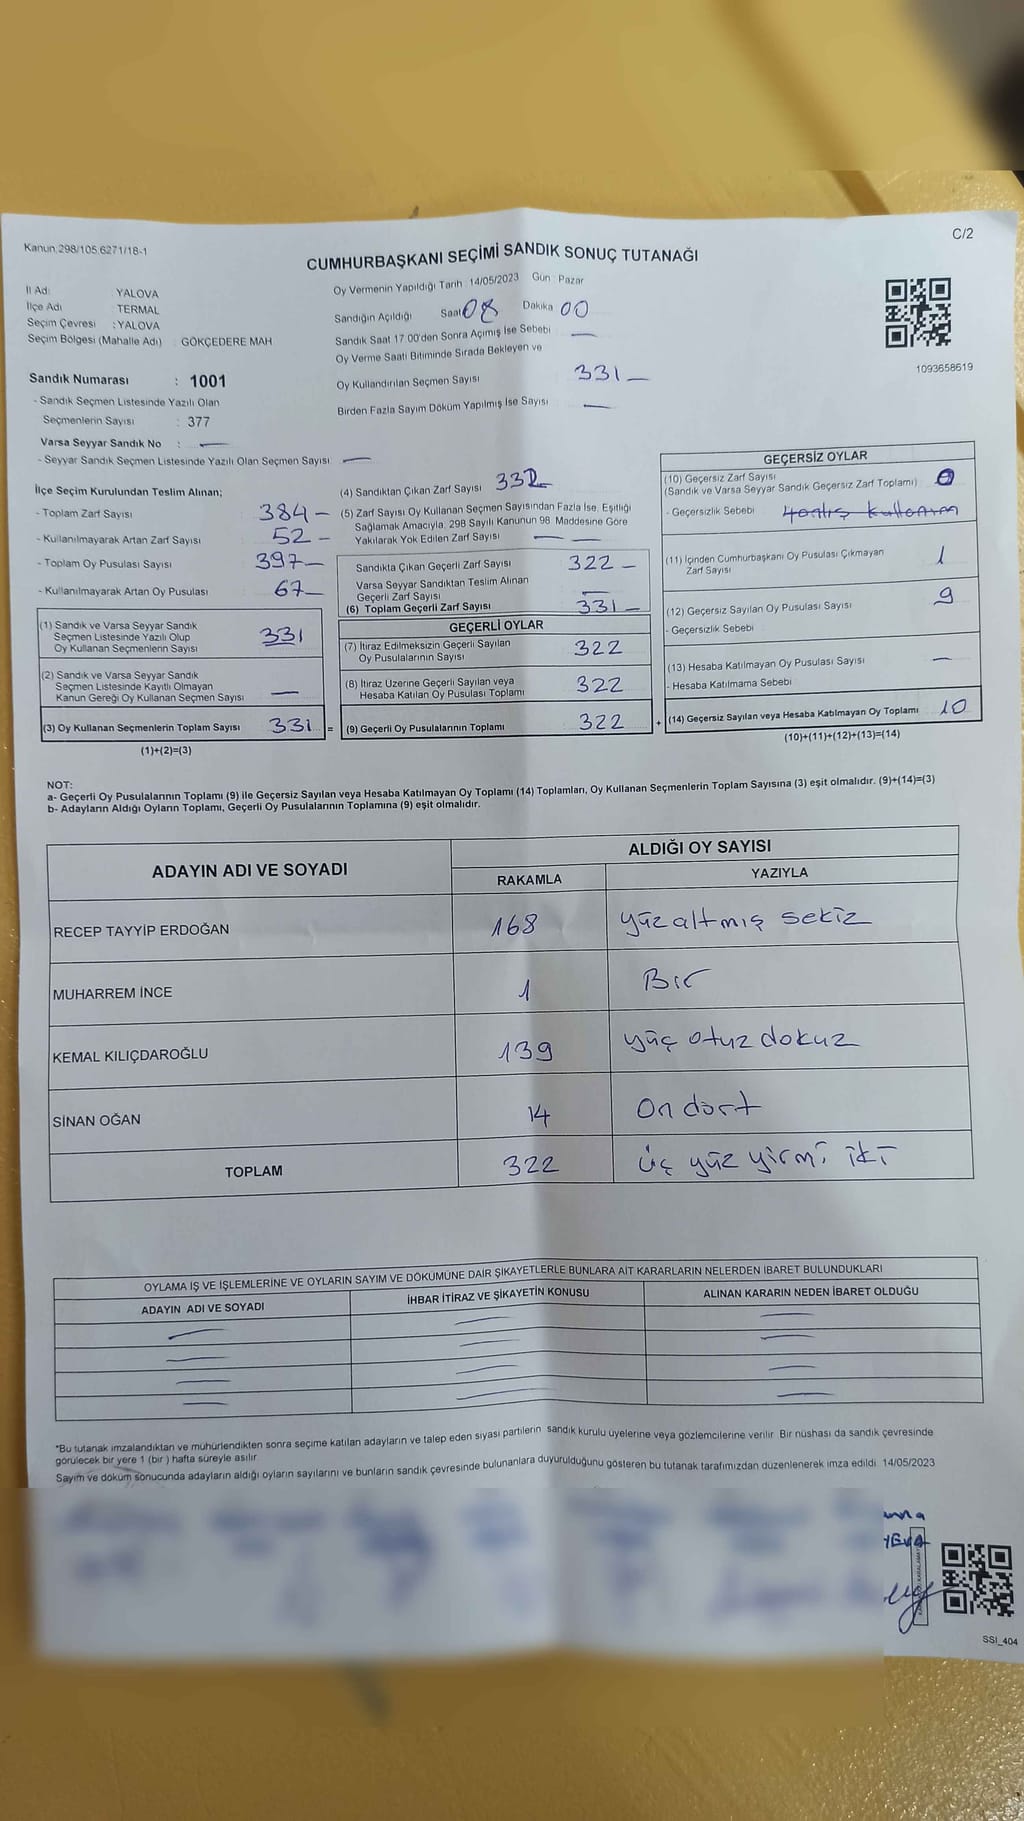 Kanun.298/105,6271/18-1
C/2
CUMHURBAŞKANI SEÇİMİ SANDIK SONUÇ TUTANAĞI
İl Adı : YALOVA
İlçe Adı : TERMAL
Seçim Çevresi : YALOVA
Seçim Bölgesi (Mahalle Adı) : GÖKÇEDERE MAH
Sandık Numarası : 1001
- Sandık Seçmen Listesinde Yazılı Olan
Seçmenlerin Sayısı : 377
Varsa Seyyar Sandık No : —
- Seyyar Sandık Seçmen Listesinde Yazılı Olan Seçmen Sayısı —
Oy Vermenin Yapıldığı Tarih : 14/05/2023 Gün : Pazar
Sandığın Açıldığı Saat 08 Dakika 00
Sandık Saat 17 00'den Sonra Açımış İse Sebebi —
Oy Verme Saati Bitiminde Sırada Bekleyen ve
Oy Kullandırılan Seçmen Sayısı 331 —
Birden Fazla Sayım Döküm Yapılmış İse Sayısı —
1093658619
İlçe Seçim Kurulundan Teslim Alınan;
- Toplam Zarf Sayısı 384 —
- Kullanılmayarak Artan Zarf Sayısı 52 —
- Toplam Oy Pusulası Sayısı 397 —
- Kullanılmayarak Artan Oy Pusulası 67 —
(1) Sandık ve Varsa Seyyar Sandık
Seçmen Listesinde Yazılı Olup
Oy Kullanan Seçmenlerin Sayısı 331
(2) Sandık ve Varsa Seyyar Sandık
Seçmen Listesinde Kayıtlı Olmayan
Kanun Gereği Oy Kullanan Seçmen Sayısı —
(3) Oy Kullanan Seçmenlerin Toplam Sayısı 331 =
(1)+(2)=(3)
(4) Sandıktan Çıkan Zarf Sayısı 332
(5) Zarf Sayısı Oy Kullanan Seçmen Sayısından Fazla İse, Eşitliği
Sağlamak Amacıyla, 298 Sayılı Kanunun 98 Maddesine Göre
Yakılarak Yok Edilen Zarf Sayısı — —
Sandıkta Çıkan Geçerli Zarf Sayısı 322 —
Varsa Seyyar Sandıktan Teslim Alınan
Geçerli Zarf Sayısı —
(6) Toplam Geçerli Zarf Sayısı 331 —
GEÇERLİ OYLAR
(7) İtiraz Edilmeksizin Geçerli Sayılan
Oy Pusulalarının Sayısı 322
(8) İtiraz Üzerine Geçerli Sayılan veya
Hesaba Katılan Oy Pusulası Toplamı 322
(9) Geçerli Oy Pusulalarının Toplamı 322 +
GEÇERSİZ OYLAR
(10) Geçersiz Zarf Sayısı
(Sandık ve Varsa Seyyar Sandık Geçersiz Zarf Toplamı) 0
- Geçersizlik Sebebi
(11) İçinden Cumhurbaşkanı Oy Pusulası Çıkmayan
Zarf Sayısı 1
(12) Geçersiz Sayılan Oy Pusulası Sayısı 9
- Geçersizlik Sebebi
(13) Hesaba Katılmayan Oy Pusulası Sayısı —
- Hesaba Katılmama Sebebi
(14) Geçersiz Sayılan veya Hesaba Katılmayan Oy Toplamı 10
(10)+(11)+(12)+(13)=(14)
NOT:
a- Geçerli Oy Pusulalarının Toplamı (9) ile Geçersiz Sayılan veya Hesaba Katılmayan Oy Toplamı (14) Toplamları, Oy Kullanan Seçmenlerin Toplam Sayısına (3) eşit olmalıdır. (9)+(14)=(3)
b- Adayların Aldığı Oyların Toplamı, Geçerli Oy Pusulalarının Toplamına (9) eşit olmalıdır.
ADAYIN ADI VE SOYADI ALDIĞI OY SAYISI
RAKAMLA YAZIYLA
RECEP TAYYİP ERDOĞAN 168 yüz altmış sekiz
MUHARREM İNCE 1 Bir
KEMAL KILIÇDAROĞLU 139 yüç otuz dokuz
SİNAN OĞAN 14 On dört
TOPLAM 322 üç yüz yirmi iki
OYLAMA İŞ VE İŞLEMLERİNE VE OYLARIN SAYIM VE DÖKÜMÜNE DAİR ŞİKAYETLERLE BUNLARA AİT KARARLARIN NELERDEN İBARET BULUNDUKLARI
ADAYIN ADI VE SOYADI İHBAR İTİRAZ VE ŞİKAYETİN KONUSU ALINAN KARARIN NEDEN İBARET OLDUĞU
*Bu tutanak imzalandıktan ve mühürlendikten sonra seçime katılan adayların ve talep eden siyasi partilerin sandık kurulu üyelerine veya gözlemcilerine verilir. Bir nüshası da sandık çevresinde
görülecek bir yere 1 (bir ) hafta süreyle asılır
Sayım ve döküm sonucunda adayların aldığı oyların sayılarını ve bunların sandık çevresinde bulunanlara duyurulduğunu gösteren bu tutanak tarafımızdan düzenlenerek imza edildi. 14/05/2023
SSI_404